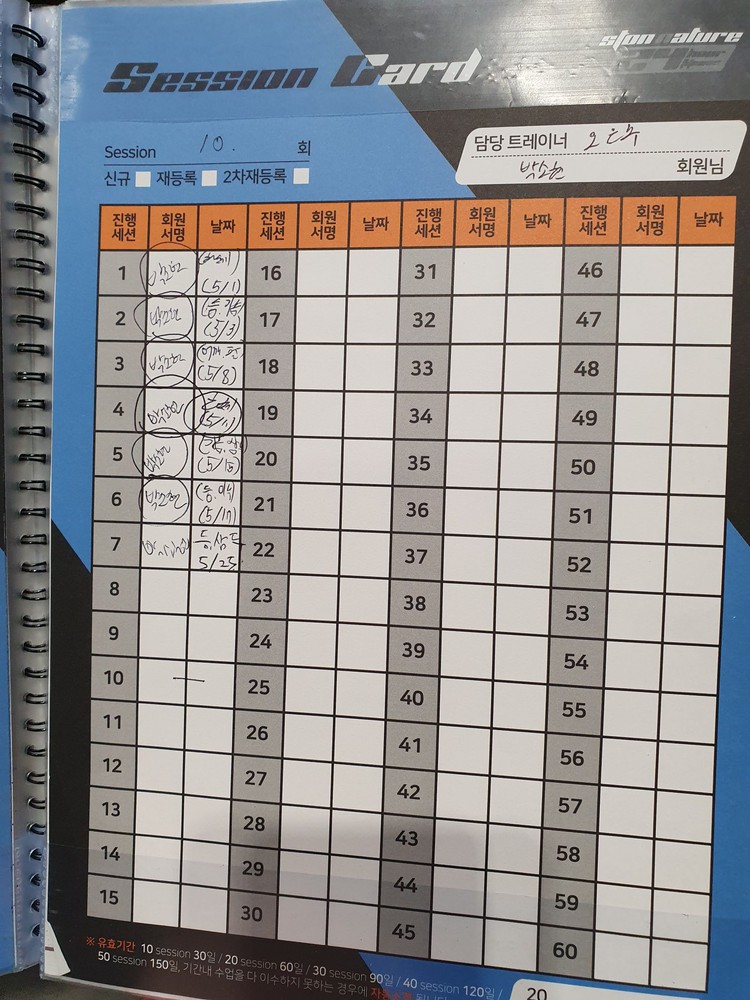 stonnature
Session Card
Session 10. 회
신규 재등록 2차재등록
담당 트레이너
박소현 회원님
진행 세션 회원 서명 날짜 진행 세션 회원 서명 날짜 진행 세션 회원 서명 날짜 진행 세션 회원 서명 날짜
1 박소현 (5/1) 16 31 46
2 박소현 (5/3) 17 32 47
3 박소현 (5/8) 18 33 48
4 박소현 19 34 49
5 박소현 20 35 50
6 박소현 (5/17) 21 36 51
7 5/25 22 37 52
8 23 38 53
9 24 39 54
10 25 40 55
11 26 41 56
12 27 42 57
13 28 43 58
14 29 44 59
15 30 45 60
※ 유효기간 10 session 30일 / 20 session 60일 / 30 session 90일 / 40 session 120일 /
50 session 150일, 기간내 수업을 다 이수하지 못하는 경우에
20